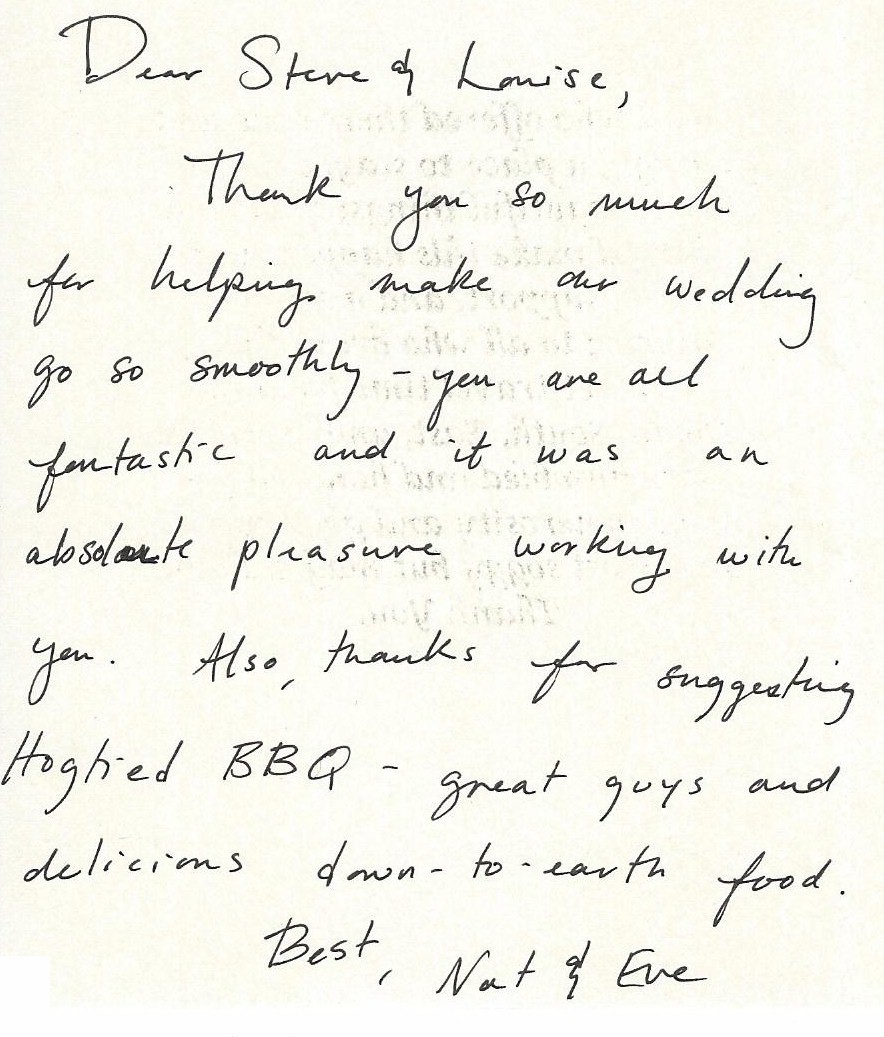 Dear Steve & Louise,
Thank you so much
for helping make our wedding
go so smoothly - you are all
fantastic and it was an
absolute pleasure working with
you. Also, thanks for suggesting
Hogtied BBQ - great guys and
delicious down-to-earth food.
Best, Nat & Eve